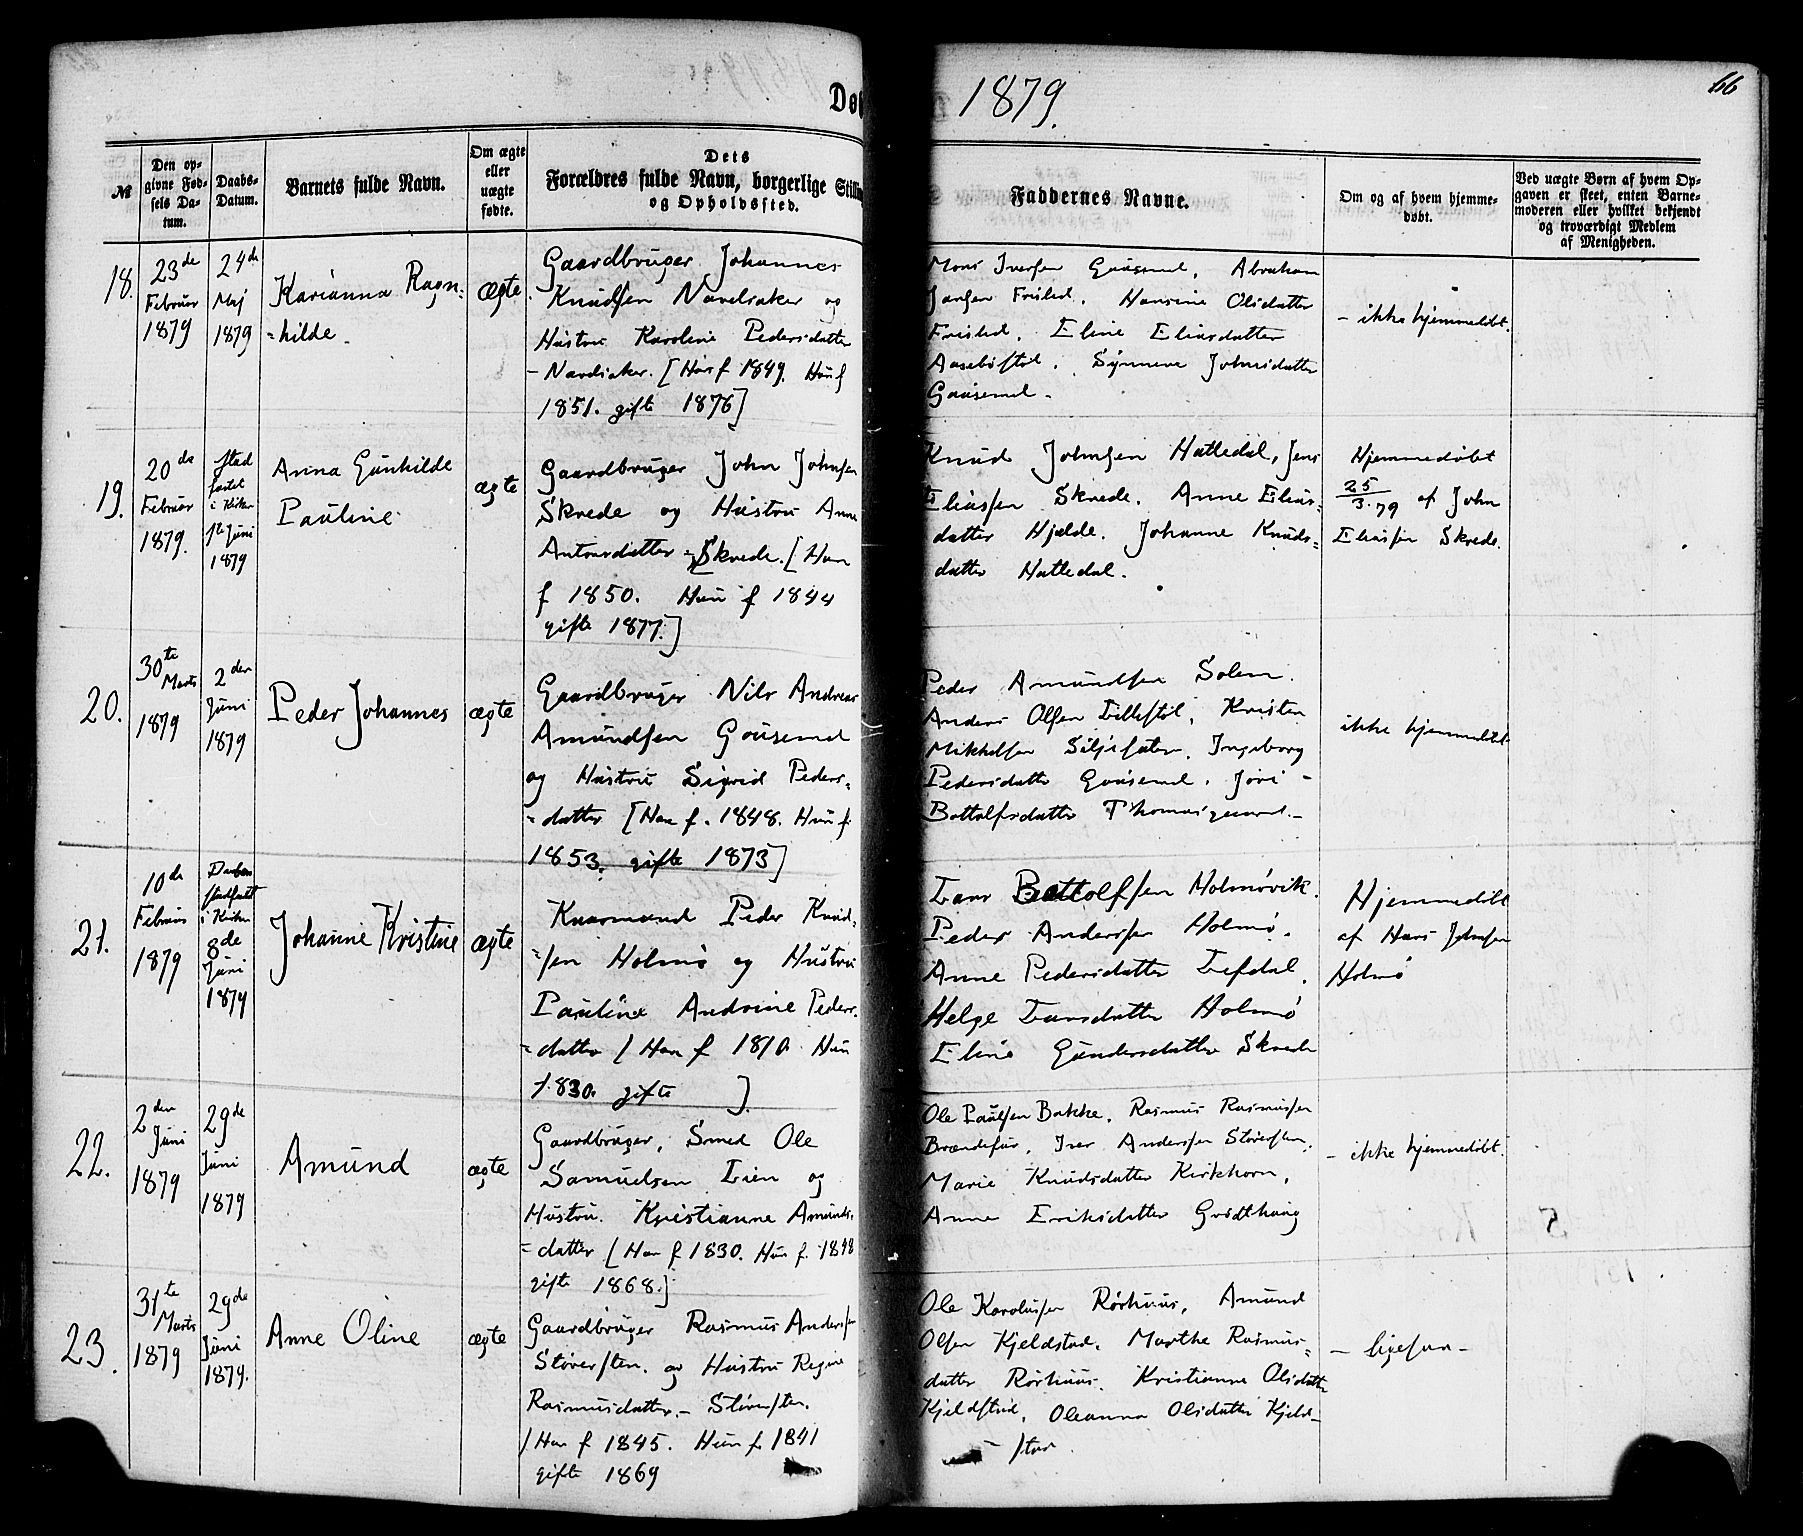 1879.
66
№
Den opgivne Fødsels Datum.
Daabs-Datum.
Barnets fulde Navn.
Om ægte eller uægte fødte.
Dets Forældres fulde Navn, borgerlige
og Opholdssted.
Faddernes Navne.
Om og af hvem hjemmedøbt.
Ved uægte Børn af hvem Opgaven er skeet, enten Barnemoderen eller hvilket bekjendt og troværdigt Medlem af Menigheden.
18.
23de Februar 1879
24de Maj 1879
Karianna Ragn=
=hilde.
ægte
Gaardbruger Johannes
Knudsen Navelsaker og
Hustru Karoline Pedersdatter
[Han f 1849. Hun f
1851. gifte 1876]
Mons Iversen Abraham
Hansine Olsdatter
Eline Eliasdatter
Synneve Johnsdatter
- ikke hjemmedøbt.
19.
20de Februar 1879.
Stadfæstet i Kirken Juni 1879
Anna Gunhilde
Pauline
ægte
Gaardbruger John Johnsen
Skrede og Hustru Anne
Antonsdatter Skrede. [Han
f 1850. Hun f 1844
gifte 1877.]
Knud Johnsen Hattedal, Jens
Eliassen Skrede. Anne Elias=
datter Hjelde. Johanne Knuds=
datter Hattedal.
Hjemmedøbt
25/3.79 af John
Eliassen Skrede.
20.
30te Marts 1879
2den Juni 1879
Peder Johannes
ægte
Gaardbruger Nils Andreas
Amundsen Gousemel
og Hustru Sigrid Peders=
=datter [Han f. 1848. Hun f.
1853. gifte 1873]
Peder Amundsen Solem.
Anders Olsen Lillestøl, Kristen
Mikkelsen Ingeborg
Pedersdatter Gousemel.
Bottolfsdatter Thomasgaard.-
ikke hjemmedøbt
21.
10de Februar 1879
Daaben stadfæstet i Kirken 8de Juni 1879
Johanne Kristine
ægte
Peder Knud=
=sen Holmø og Hustru
Pauline Andrine Peders=
=datter [Han f Hun
1830. gifte ].
Lars Bottolfsen Holmøvik.
Peder Andersen Holmø.
Anne Pedersdatter Lefdal.
Helge Larsdatter Holmø
Eline Gundersdatter Skrede
Hjemmedøbt
af Hans Johnsen
Holmø
22.
2den Juni 1879
29de Juni 1879
Amund
ægte
Gaardbruger, Smed Ole
Samuelsen Lien og
Hustru. Kristianne Amunds=
=datter [Han f 1830. Hun f. 1848
gifte 1868.]
Ole Paulsen Bakke. Rasmus Rasmussen
Iver Andersen Støversten.
Marie Knudsdatter Kirkhorn,
Anne Eriksdatter
- ikke hjemmedøbt.
23.
31te Marts 1879
29de Juni 1879.
Anne Oline
ægte
Gaardbruger Rasmus Andersen
Støversten. og Hustru Regine
Rasmusdatter.- Støversten.
[Han f 1845. Hun f. 1841
gifte 1869
Ole Karolussen Rørhuus, Amund
Olsen Kjeldstad. Marthe Rasmus=
datter Rørhuus. Kristianne Olsdatter
Kjeldstad, Oleanna Olsdatter Kjeld-
stad.
- ligesaa -